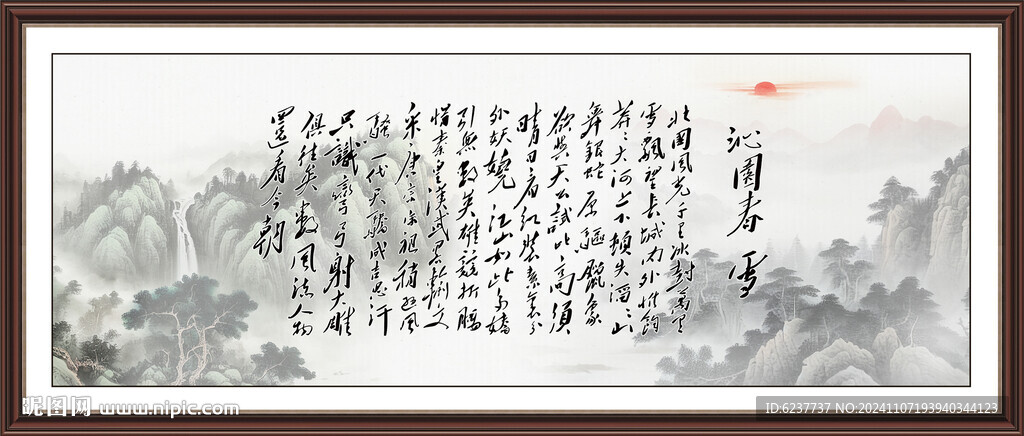 沁園春 雪
北國風光千里冰封萬里
雪飄望長城內外惟餘
莽〻大河上下頓失滔〻山
舞銀蛇原驅臘象
欲與天公試比高須
晴日看紅裝素裹分
外妖嬈 江山如此多嬌
引無數英雄競折腰
惜秦皇漢武略輸文
采唐宗宋祖稍遜風
騷一代天驕成吉思汗
只識彎弓射大雕
俱往矣數風流人物
還看今朝
昵图网 www.nipic.com
ID:6237737 NO:20241107193940344123